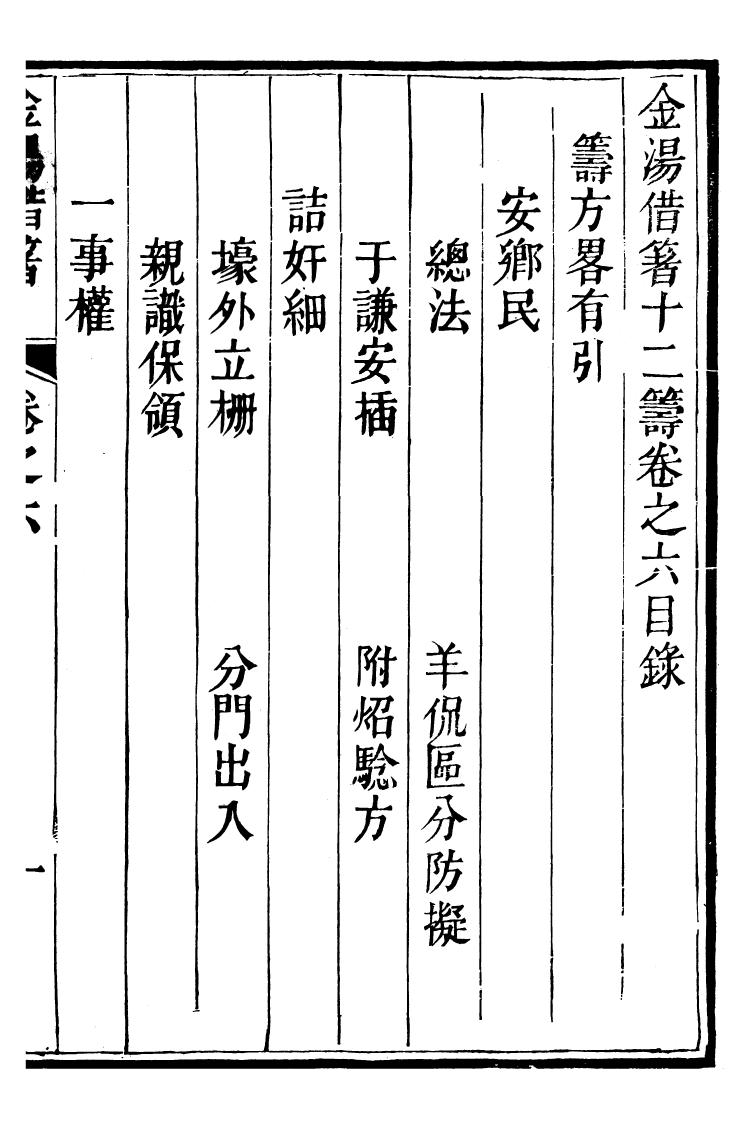 金湯借箸十二籌卷之六目錄
籌方畧有引
安鄉民
總法　羊侃區分防擬
于謙安插　附炤騐方
詰奸細
壕外立柵　分門出入
親識保領
一事權
金湯借箸　卷之六　一